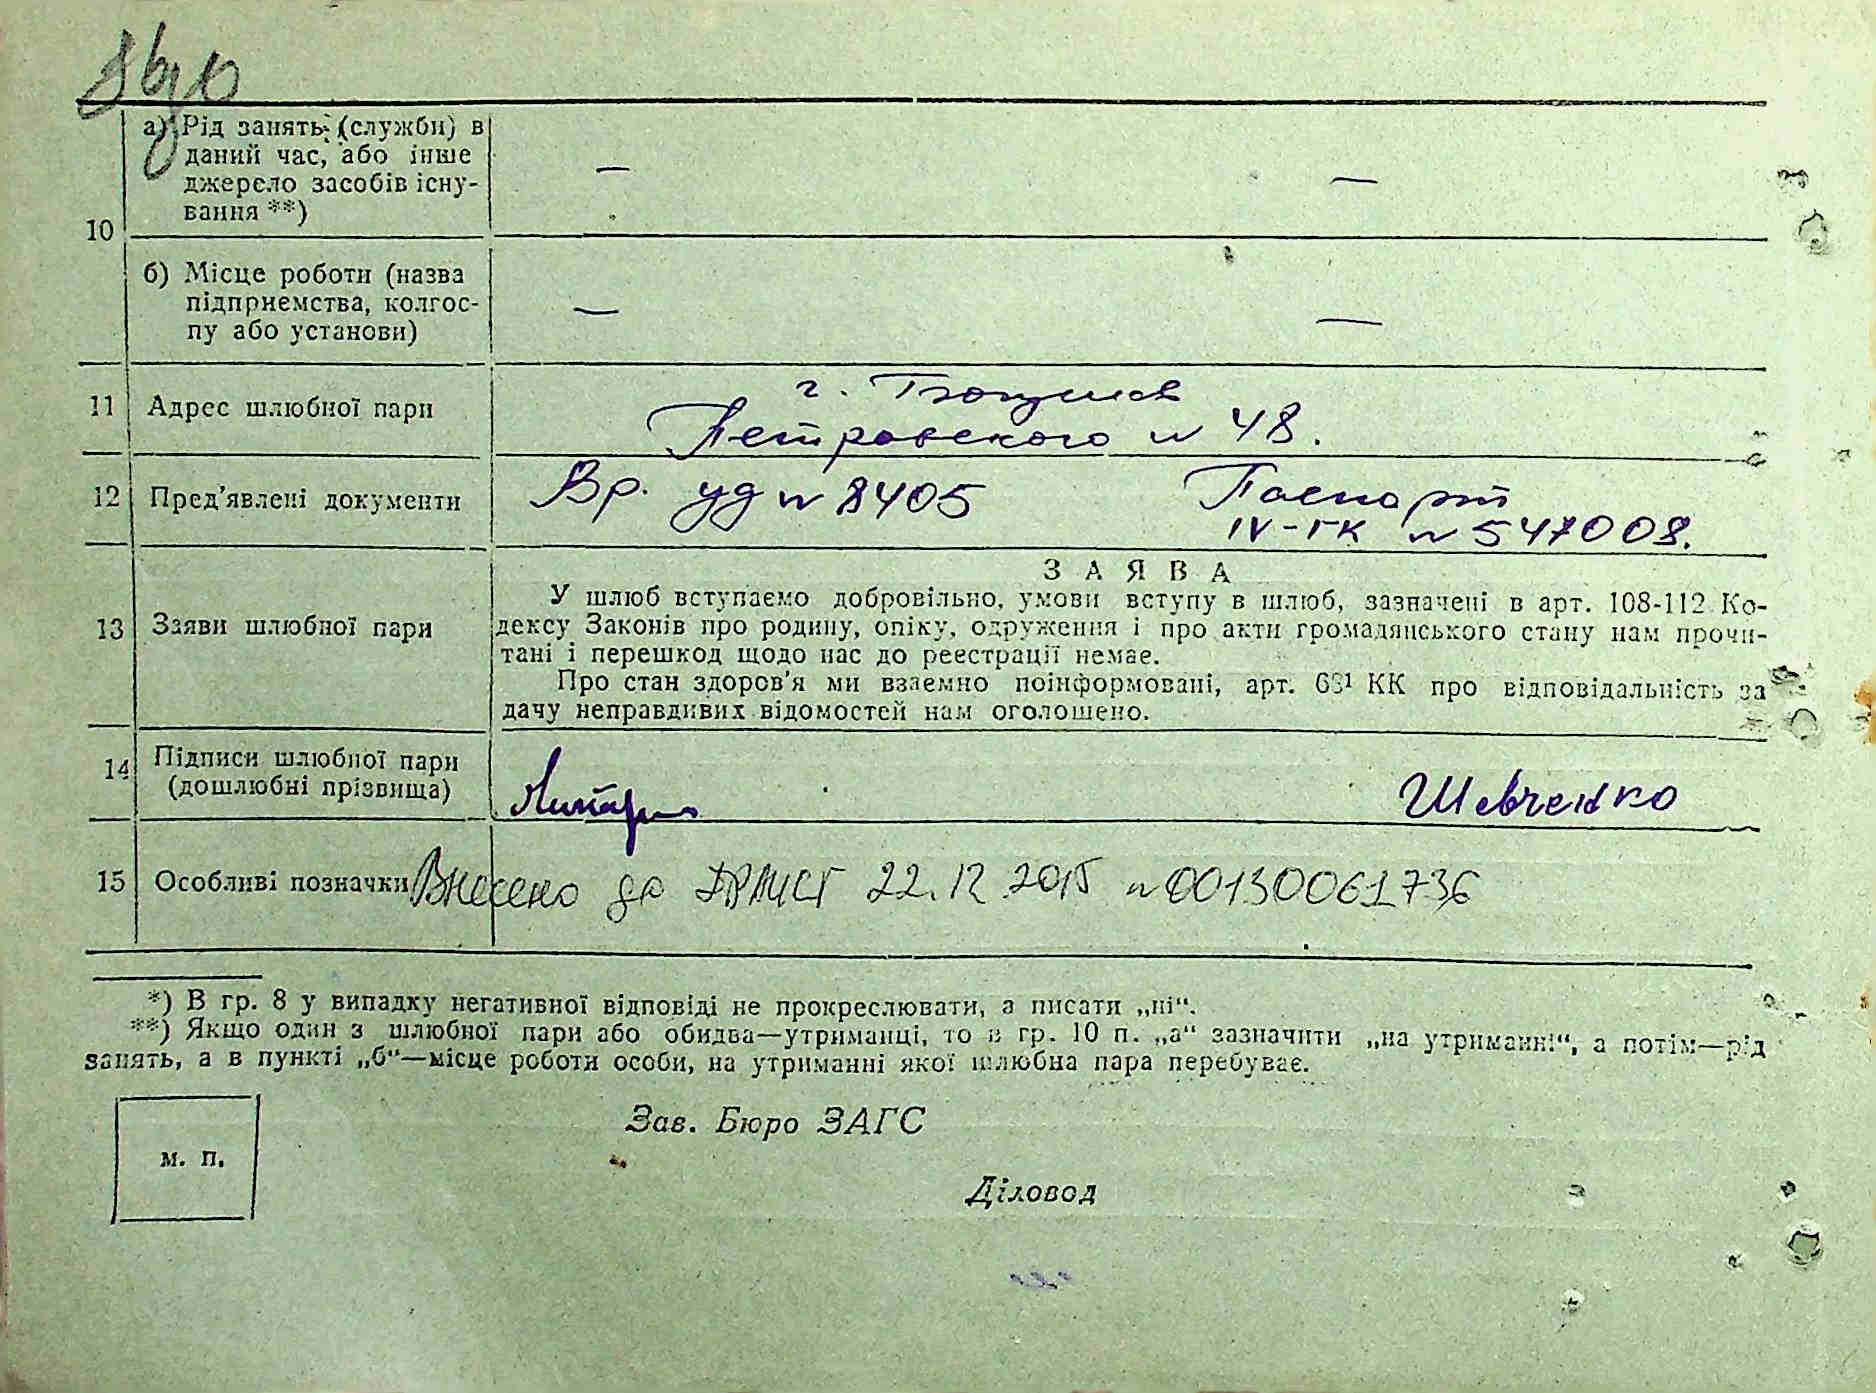 а) Рід занять (служби) в
даний час, або інше
джерело засобів існу-
вання **)
—
—
10
б) Місце роботи (назва
підприємства, колгос-
пу або установи)
—
—
11
Адрес шлюбної пари
г.
Петровского № 48.
12
Пред'явлені документи
Вр. уд № 8405
Паспорт
IV-ГК № 547008.
13
Заяви шлюбної пари
ЗАЯВА
У шлюб вступаємо добровільно, умови вступу в шлюб, зазначені в арт. 108-112 Ко-
дексу Законів про родину, опіку, одруження і про акти громадянського стану нам прочи-
тані і перешкод щодо нас до реєстрації немає.
Про стан здоров'я ми взаємно поінформовані, арт. 68¹ КК про відповідальність за
дачу неправдивих відомостей нам оголошено.
14
Підписи шлюбної пари
(дошлюбні прізвища)
Шевченко
15
Особливі позначки
Внесено до ДРАЦСГ 22.12.2015 № 00130061736
*) В гр. 8 у випадку негативної відповіді не прокреслювати, а писати „ні“.
**) Якщо один з шлюбної пари або обидва—утриманці, то в гр. 10 п. „а“ зазначити „на утриманні“, а потім—рід
занять, а в пункті „б“—місце роботи особи, на утриманні якої шлюбна пара перебуває.
м. п.
Зав. Бюро ЗАГС
Діловод